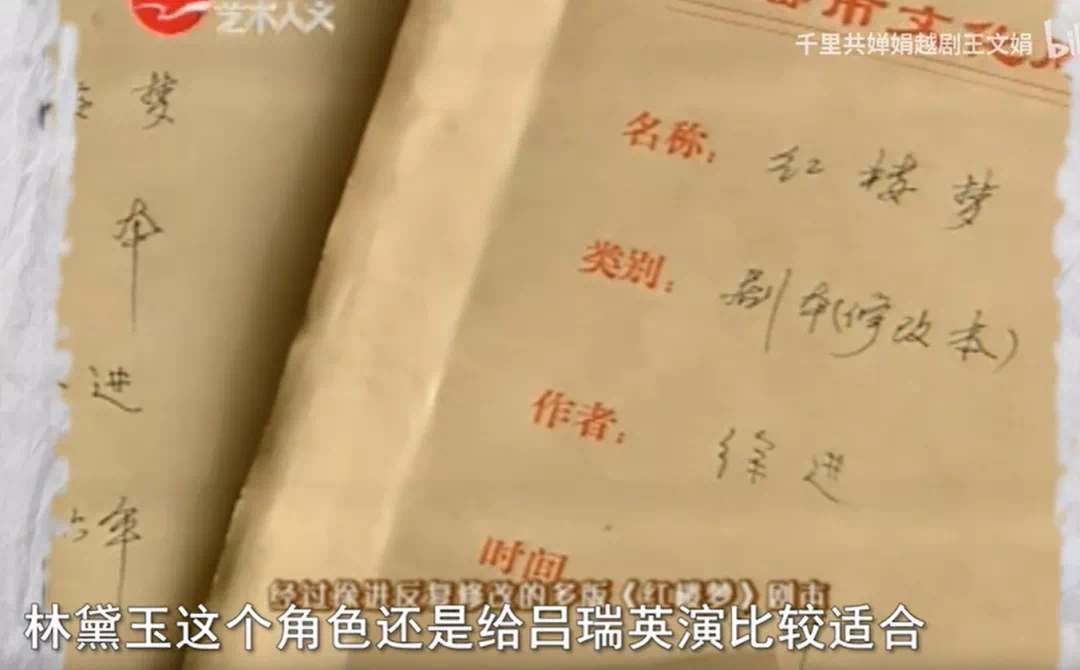 艺术人文
千里共婵娟越剧王文娟
名称：红楼梦
类别：剧本(修改本)
作者：徐进
时间
梦
本
进
年
经过徐进反复修改的多版《红楼梦》剧本
林黛玉这个角色还是给吕瑞英演比较适合